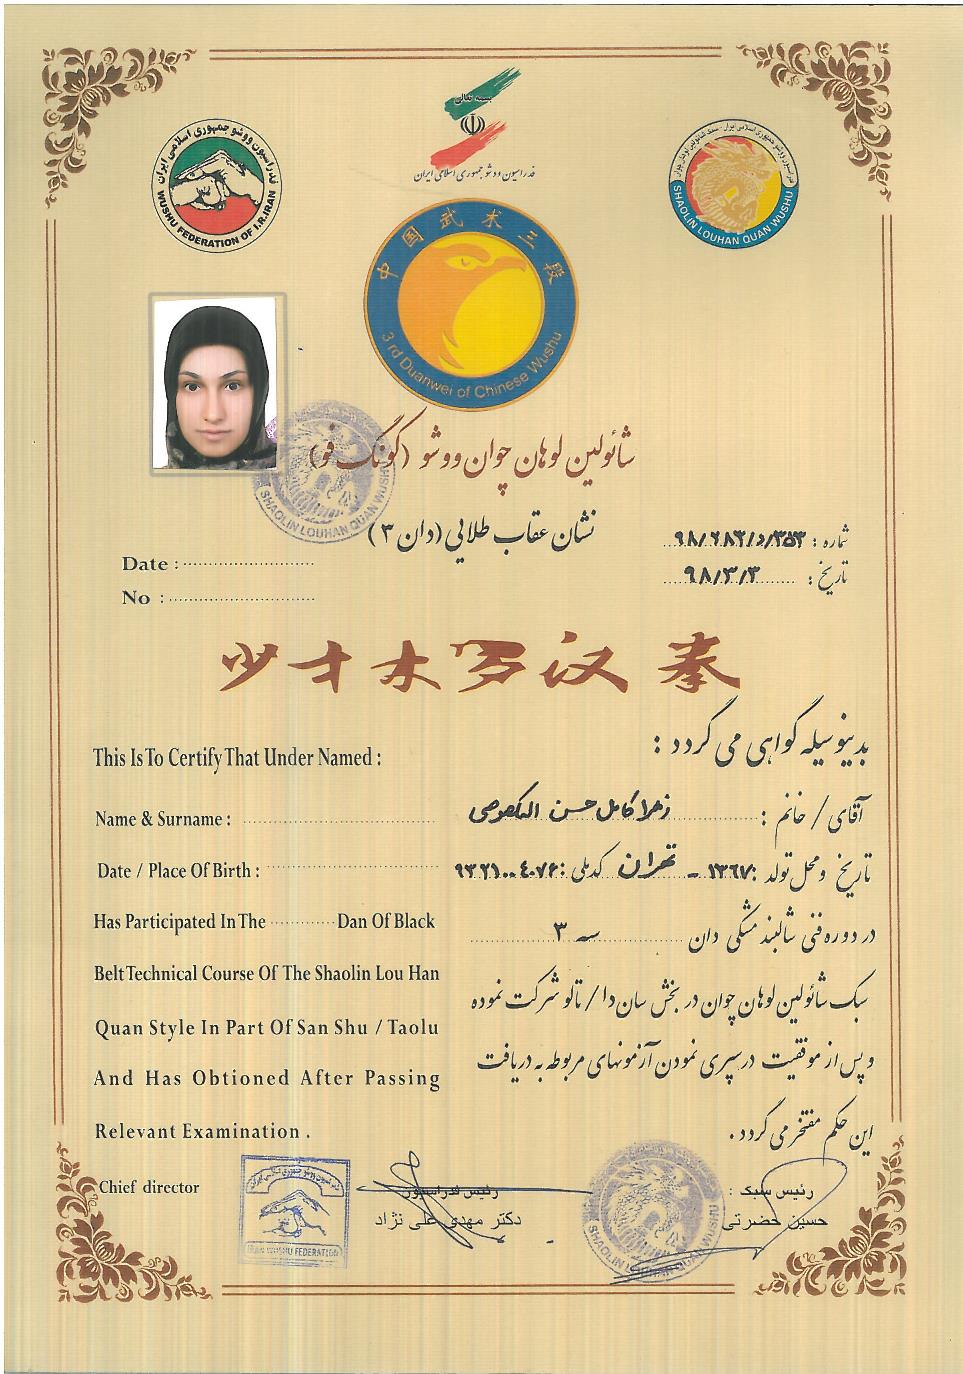 بسمه تعالی
فدراسیون ووشو جمهوری اسلامی ایران
فدراسیون ووشو جمهوری اسلامی ایران
WUSHU FEDERATION OF I.R.IRAN
SHAOLIN LOUHAN QUAN WUSHU
中国武术三段
3 rd Duanwei of Chinese Wushu
شائولین لوهان چوان ووشو (کونگ فو)
SHAOLIN LOUHAN QUAN WUSHU
نشان عقاب طلایی (دان ۳)
شماره : ۹۸/۶۸۲/د/۳۵۳
تاریخ : ۹۸/۳/۳
Date :
No :
少才木罗汉拳
بدینوسیله گواهی می گردد :
This Is To Certify That Under Named :
آقای / خانم : زهرا کامل حسن
Name & Surname :
تاریخ و محل تولد : ۱۳۶۷ - تهران کد ملی : ۹۳۲۱۰۰۴۰۷۶
Date / Place Of Birth :
در دوره فنی شالبند مشکی دان سه ۳
Has Participated In The Dan Of Black
سبک شائولین لوهان چوان در بخش سان دا / تالو شرکت نموده
Belt Technical Course Of The Shaolin Lou Han
و پس از موفقیت در سپری نمودن آزمونهای مربوطه به دریافت
Quan Style In Part Of San Shu / Taolu
این حکم مفتخر می گردد .
And Has Obtioned After Passing
Relevant Examination .
Chief director
رئیس فدراسیون
دکتر مهدی علی نژاد
رئیس سبک :
حسین حضرتی
IRAN WUSHU FEDERATION
SHAOLIN LOUHAN QUAN WUSHU